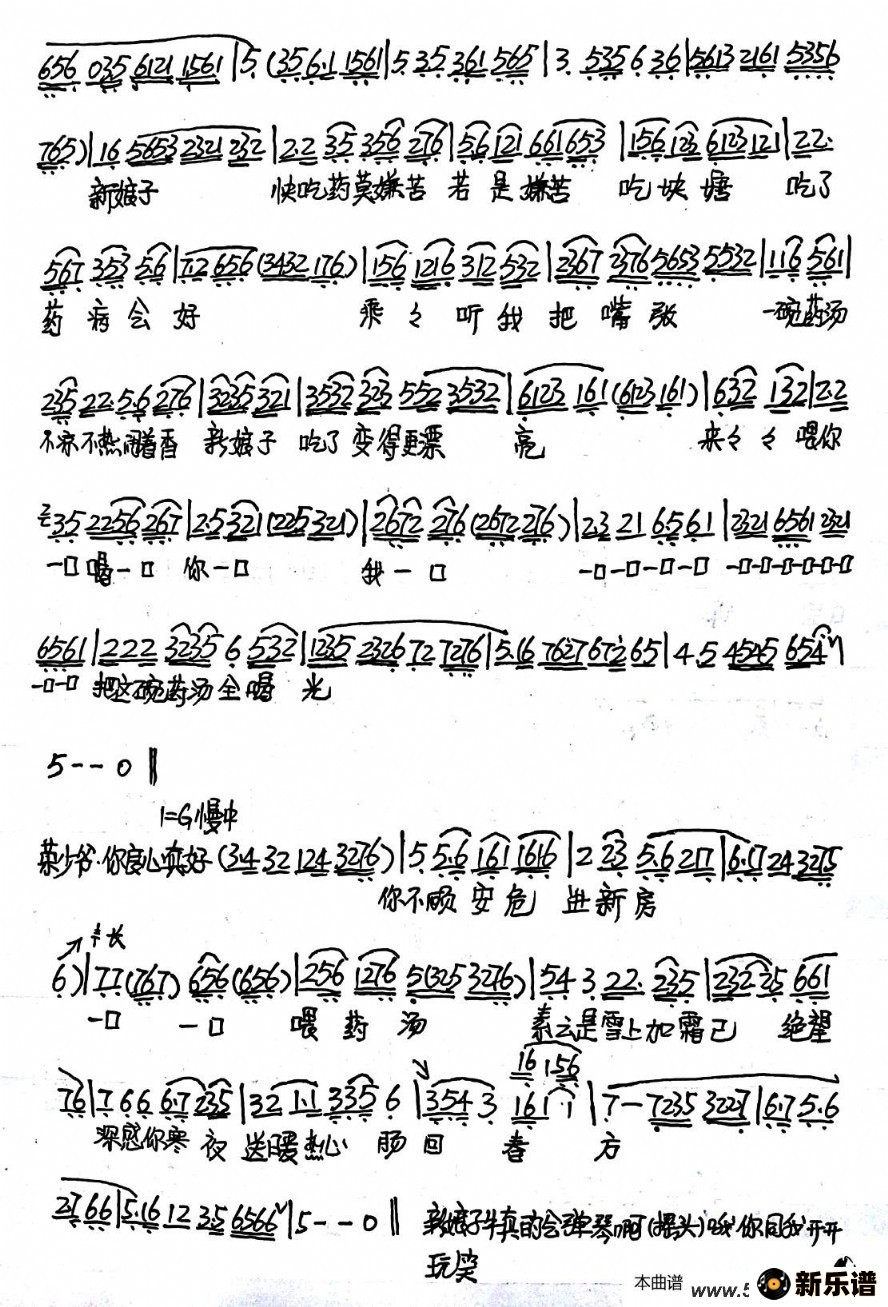 656 035 6121 1561 | 5. (35 6.1 1561 | 5. 3.5 361 565 | 3. 535 6 36 | 5613 2161 5356
765) | 16 5653 2321 232 | 2.2 35 356 276 | 5.6 121 661 653 | 156 123 6123 121 | 2.2.
新娘子 快吃药莫嫌苦 若是嫌苦 吃块塘 吃了
567 353 5.6 | 7.2 656 (3432 176) | 156 1216 312 532 | 2367 2376 5653 5532 | 116 561 |
药病会好 乘々听我把嘴张 一碗药汤
235 22 5.6 276 | 3235 321 | 3532 323 552 3532 | 6123 161 (6123 161) | 632 132 | 2.2
不凉不热闻着香 新娘子 吃了变得更漂 亮 来々々喂你
35 2256 267 | 2.5 321 (225 321) | 2672 276 (2672 276) | 2.3 21 6.5 61 | 2321 6561 2321
一口喝一口 你一口 我一口 一口一口一口一口 一口一口一口一口一口一口
6561 | 222 3235 6 532 | 1235 2326 72 7276 | 5.16 7627 672 65 | 4.5 4545 654
一口一口 把这碗药汤全喝 光
5 - - 0 ‖
1=G 慢中
荣少爷·你良心真好 (3.4 32 124 3276) | 5 5.6 161 1616 | 2 23 5.6 217 | 6.17 24 3275
你不顾安危 进新房
6) | 77 (767) 656 (656) | 256 1276 5 (325 3276) | 54 3 22. 235 | 232 25 661
一口 一口 喂药汤 素云是雪上加霜已 绝望
16 156
76 | 7 66 6.7 235 | 32 1.1 335 6 | 354 3 161 1 | 7 - 7235 3227 | 6.7 5.6
深感你寒夜送暖热心肠回春方
27 66 | 5.16 12 35 6566 | 5 - - 0 ‖ 新娘子 真的会弹琴啊(摇头)哦你同我开开
玩笑
本曲谱 www.5
新乐谱